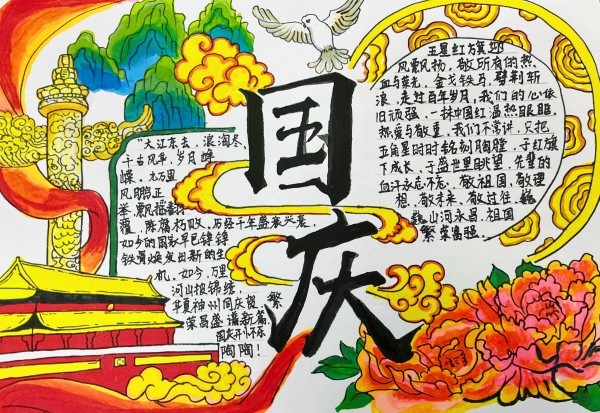 国庆
"大江东去,浪淘尽,
千古风华,岁月峥
嵘。九万里
风鹏正
举,飘摇
覆,陈腐朽败,历经千年盛衰兴衰,
如今的国歌早已铮铮
铁骨焕发出新的生
机,如今,万里
河山披锦绣,
华夏神州同庆贺,繁
荣昌盛谱新篇,
国庆开心乐
陶陶!
五星红旗迎
风飘扬,敬所有的热
血与荣光,金戈铁马,劈荆斩
浪,走过百年岁月,我们的心依
旧顽强,一抹中国红温热眼眶
热爱与敬重,我们不常讲,只把
五角星时时铭刻胸膛,于红旗
下成长,于盛世里眺望,先辈的
血汗永志不忘,敬祖国,敬理
想,敬未来,敬过往,巍
巍山河永昌,祖国
繁荣富强。